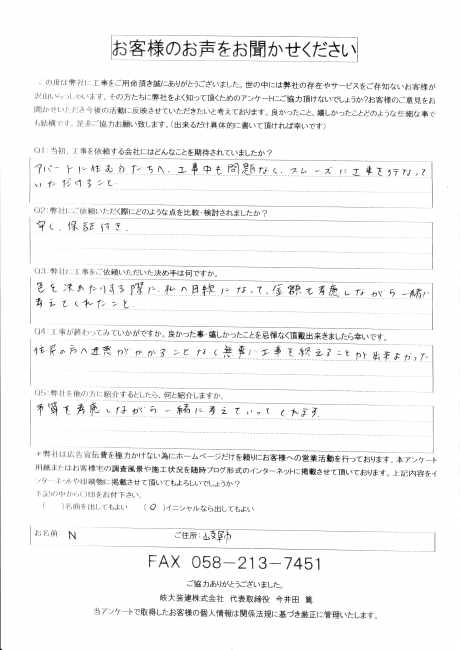 お客様のお声をお聞かせください
この度は弊社に工事をご用命頂き誠にありがとうございました。世の中には弊社の存在やサービスをご存知ないお客様が
沢山いらっしゃいます。その方たちに弊社をよく知って頂くためのアンケートにご協力頂けないでしょうか?お客様のご意見をお
聞かせいただき今後の活動に反映させていただきたいと考えております。良かったこと、嬉しかったことどのような些細な事で
も結構です、是非ご協力お願い致します。(出来るだけ具体的に書いて頂ければ幸いです)
Q1:当初、工事を依頼する会社にはどんなことを期待されていましたか?
アパートに住む方たちへ、工事中も問題なく、スムーズに工事を行なって
いただけること。
Q2:弊社にご依頼いただく際にどのような点を比較・検討されましたか?
安く、保証付き。
Q3:弊社に工事をご依頼いただいた決め手は何ですか。
色を決めたりする際に、私の目線になって、金額も考慮しながら一緒に
考えてくれたこと。
Q4:工事が終わってみていかがですか。良かった事・嬉しかったことを忌憚なく頂戴出来きましたら幸いです。
住民の方へ迷惑がかかることなく無事に工事を終えることが出来よかった
Q5:弊社を他の方に紹介するとしたら、何と紹介しますか。
予算を考慮しながら一緒に考えていってくれます。
*弊社は広告宣伝費を極力かけない為にホームページだけを頼りにお客様への営業活動を行っております。本アンケート
用紙またはお客様宅の調査風景や施工状況を随時ブログ形式のインターネットに掲載させて頂いております。上記内容をイ
ンターネットや印刷物に掲載させて頂いてもよろしいでしょうか?
下記の中から〇印をお付下さい。
( )名前を出してもよい (O)イニシャルなら出してもよい
お名前: N ご住所:
FAX 058-213-7451
ご協力ありがとうございました。
岐大装建株式会社 代表取締役 今井田 篤
当アンケートで取得したお客様の個人情報は関係法規に基づき厳正に管理いたします。